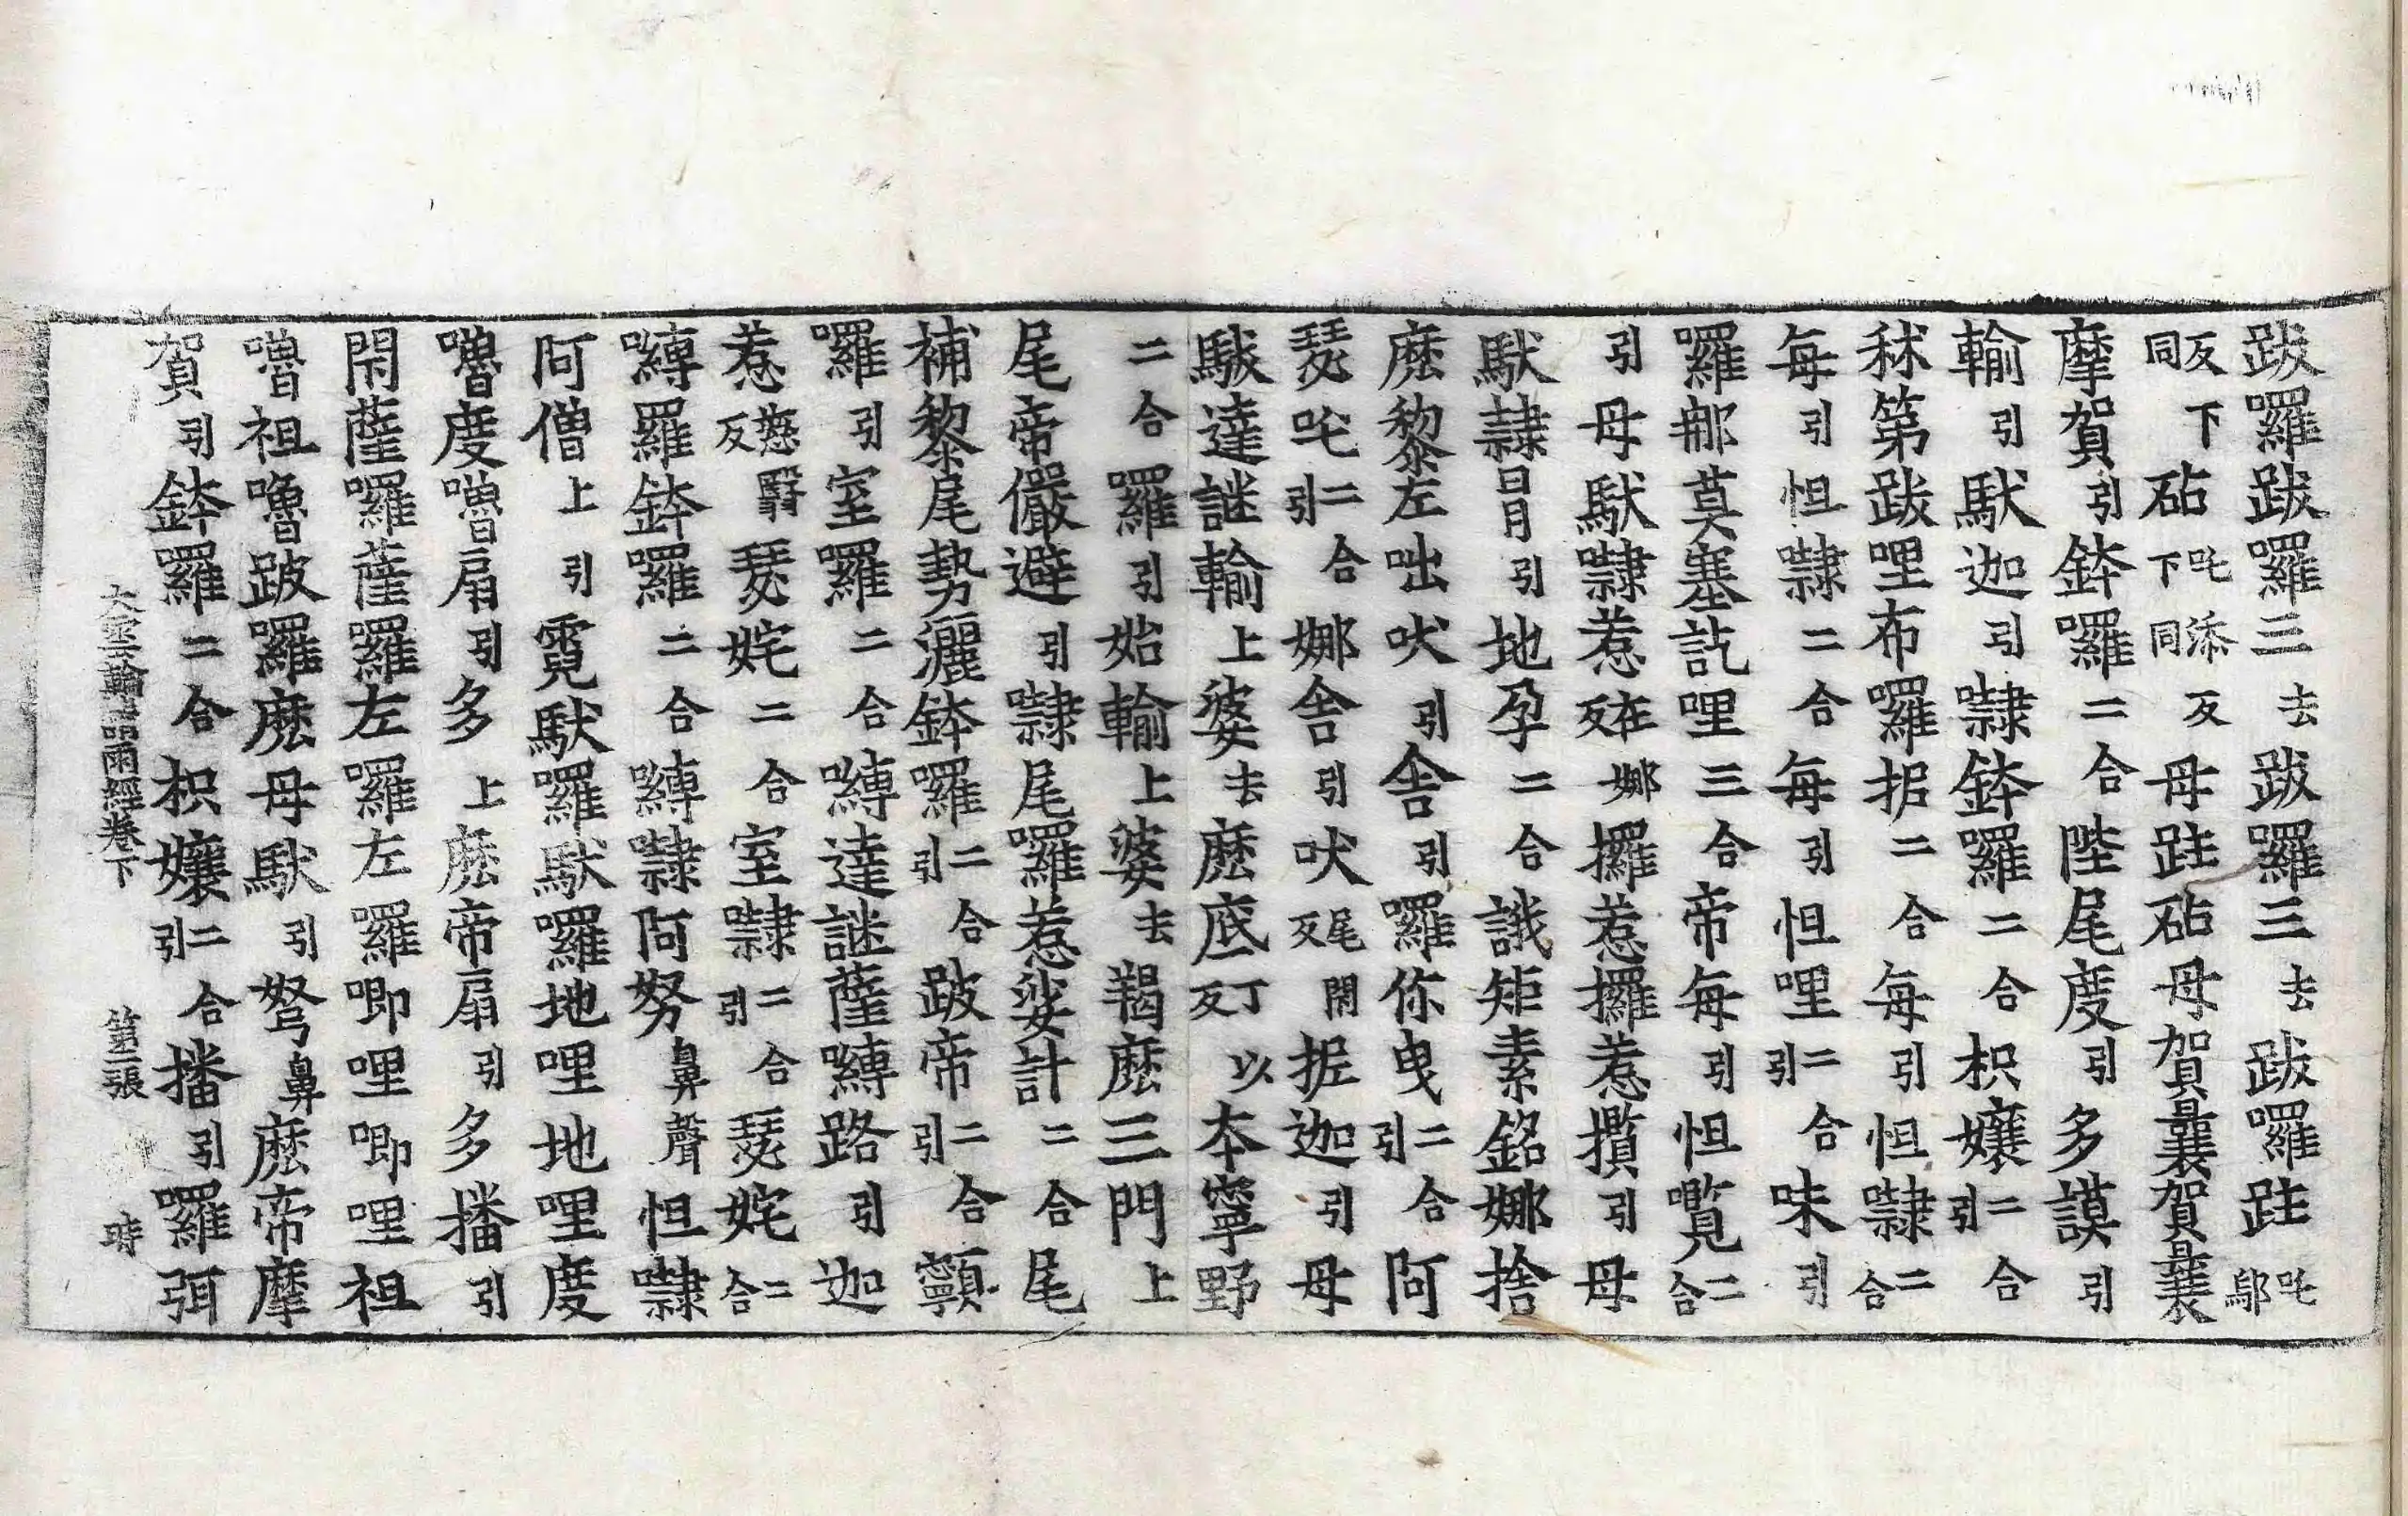 跋囉跋囉三去跋囉三去跋囉跓吒鄔
反下同砧吒添反下同母跓砧母賀曩賀曩
摩賀引鉢囉二合陛尾度引多謨引
輸引馱迦引隸鉢羅二合枳孃二合引
秫第跋哩布羅抳二合每引怛隸二合
每引怛隸二合每引怛哩二合引味引
羅郍莫塞訖哩三合帝每引怛覽二合
引母馱隸惹在娜反攞惹攞惹攢引母
馱隸冒引地孕二合誐矩素銘娜捨
麽黎左咄吠引舍引羅你曳二合引阿
瑟吒二合引娜舍引吠尾閉反抳迦引母
馱達謎輸上婆去麽底丁以反本寧野
二合羅引始輸上婆去羯麽三門上
尾帝儼避引隸尾囉惹娑計二合尾
補黎尾勢灑鉢囉二合引跛帝二合引顙
囉引室囉二合嚩達謎薩嚩路引迦
惹慈翳反瑟姹二合室隸二合引瑟姹二合
嚩羅鉢囉二合嚩隸阿努鼻聲怛隸
阿僧上引霓馱羅馱囉地哩地哩度
嚕度嚕扇引多上麽帝扇引多播引
閉薩囉薩羅左囉左羅唧哩唧哩祖
嚕祖嚕跛羅麽母馱引弩鼻麽帝摩
賀引鉢羅二合枳孃二合引播引羅弭
大雲輪請雨經卷下 第三張 時